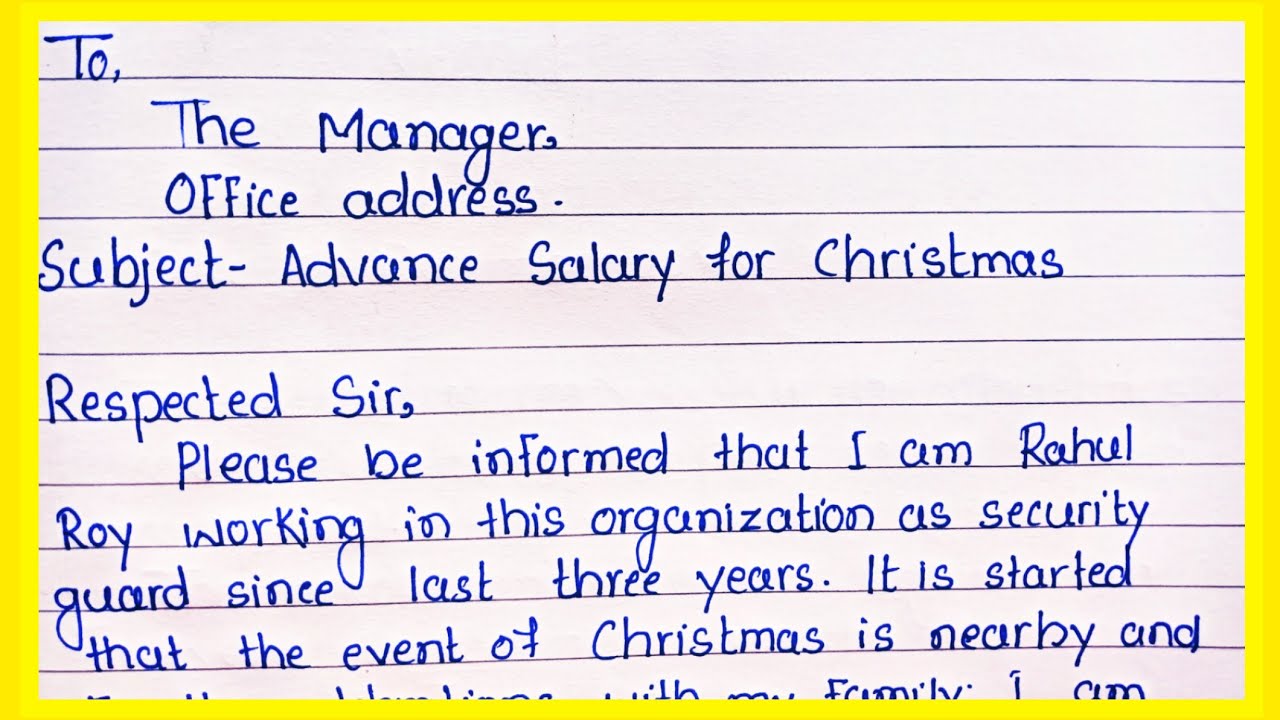 To,
The Manager,
Office address.
Subject- Advance Salary for Christmas
Respected Sir,
Please be informed that I am Rahul
Roy working in this organization as security
guard since last three years. It is started
that the event of Christmas is nearby and
with my family. I am